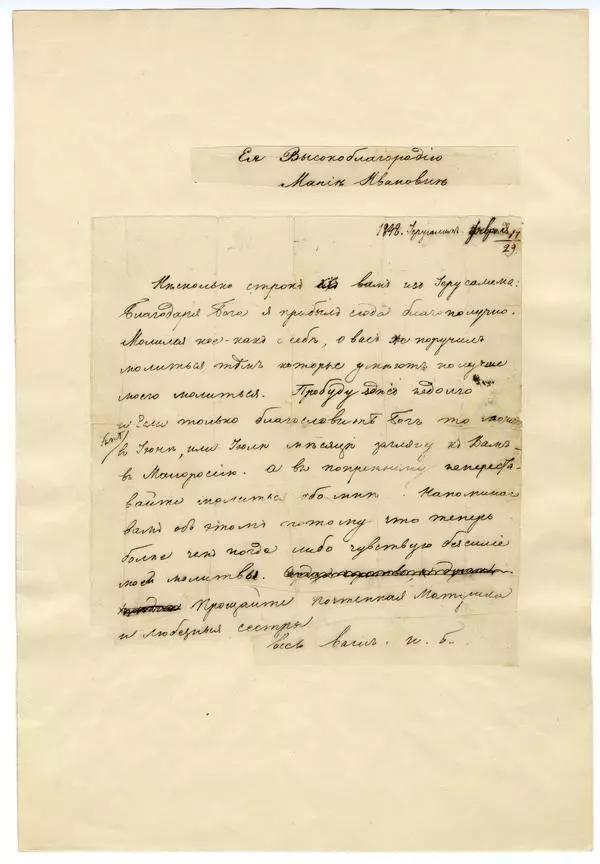 Ея Высокоблагородію
Маріи Ивановнѣ
1848. Іерусалимъ. февраля 17/29
Нѣсколько строкъ вамъ изъ Іерусалима:
Благодаря Бога я прибылъ сюда благополучно.
Молился кое-какъ о себѣ, о васъ же поручилъ
молиться тѣмъ которые умѣютъ получше
моего молиться. Пробуду здѣсь недолго
и Если только благословитъ Богъ то
въ Іюнѣ, или Іюлѣ мѣсяцѣ загляну къ Вамъ
въ Малоросію. а вы попрежнему непереста
вайте молиться обо мнѣ. Напоминаю
вамъ объ этомъ потому что теперь
болѣе чѣмъ когда либо чувствую безсиліе
моей молитвы.
Прощайте почтенная Матушка
и любезныя сестры
весь вашъ. Н. Г.